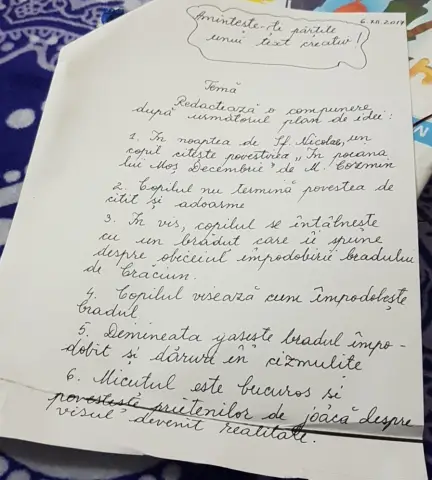 Amintește-ți părțile
unui text creativ!
6.XII.2017
Temă
Redactează o compunere
după următorul plan de idei:
1. În noaptea de Sf. Nicolae, un
copil citește povestirea „În poiana
lui Moș Decembrie" de M. Cozmin
2. Copilul nu termină povestea de
citit și adoarme
3. În vis, copilul se întâlnește
cu un brăduț care îi spune
despre obiceiul împodobirii bradului
de Crăciun.
4. Copilul visează cum împodobește
bradul
5. Dimineața găsește bradul împo-
dobit și daruri în cizmulițe
6. Micuțul este bucuros și
povestește prietenilor de joacă despre
visul devenit realitate.